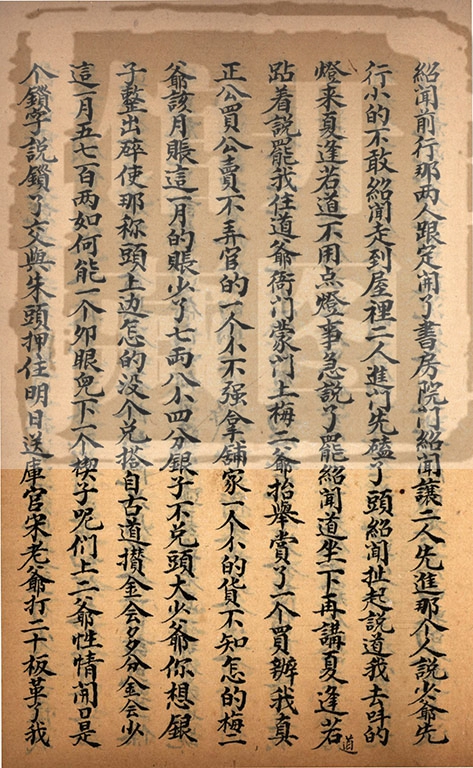 紹聞前行那两人跟定開了書房院門紹聞讓二人先進那个人說少爺先
行小的不敢紹聞走到屋裡二人進门先磕了頭紹聞扯起說道我去叫的
燈来夏逢若道不用点燈事急說了罷紹聞道坐下再講夏逢若道
跕着說罷我住道爺衙門蒙门上梅二爺抬舉賞了一個買辦我真
正公買公賣不弄官的一个小不强拿铺家一个小的貨不知怎的梅二
爺該月賬這一月的賬少了七两八小四分銀子不兑頭大少爺你想銀
子整出碎使那称頭上边怎的没个兑搭自古道攅金会多分金会少
這一月五七百两如何能一个卯眼兒下一个楔子呢们上二爺性情開口是
个鎖字說鎖了交與朱頭押住明日送庫官宋老爺打二十板革了我